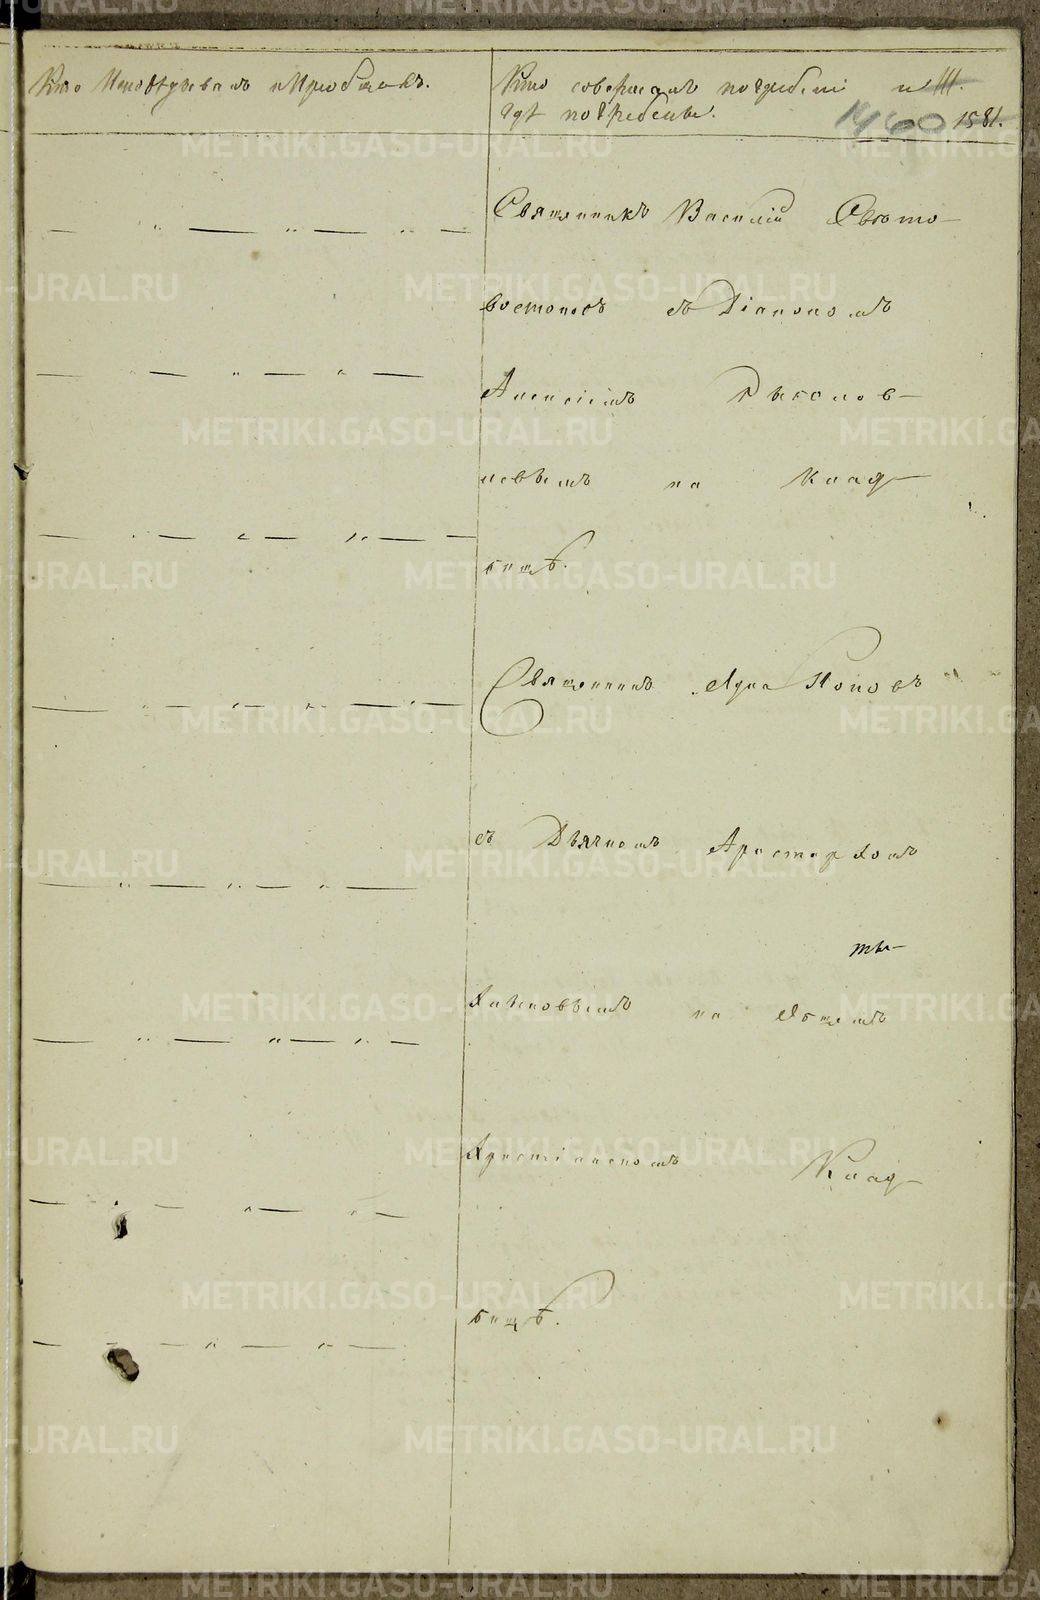 Кто Исповѣдывалъ и Пріобщалъ.
Кто совершалъ погребеніе и
гдѣ погребены.
1581.
Священникъ Василій Свѣто-
востоковъ съ Діакономъ
Алексіемъ
на Клад-
бищѣ.
Священникъ Лука Поповъ
съ Дьячкомъ Аристархомъ
ты-
на Общемъ
Христіанскомъ Клад-
бищѣ.
METRIKI.GASO-URAL.RU